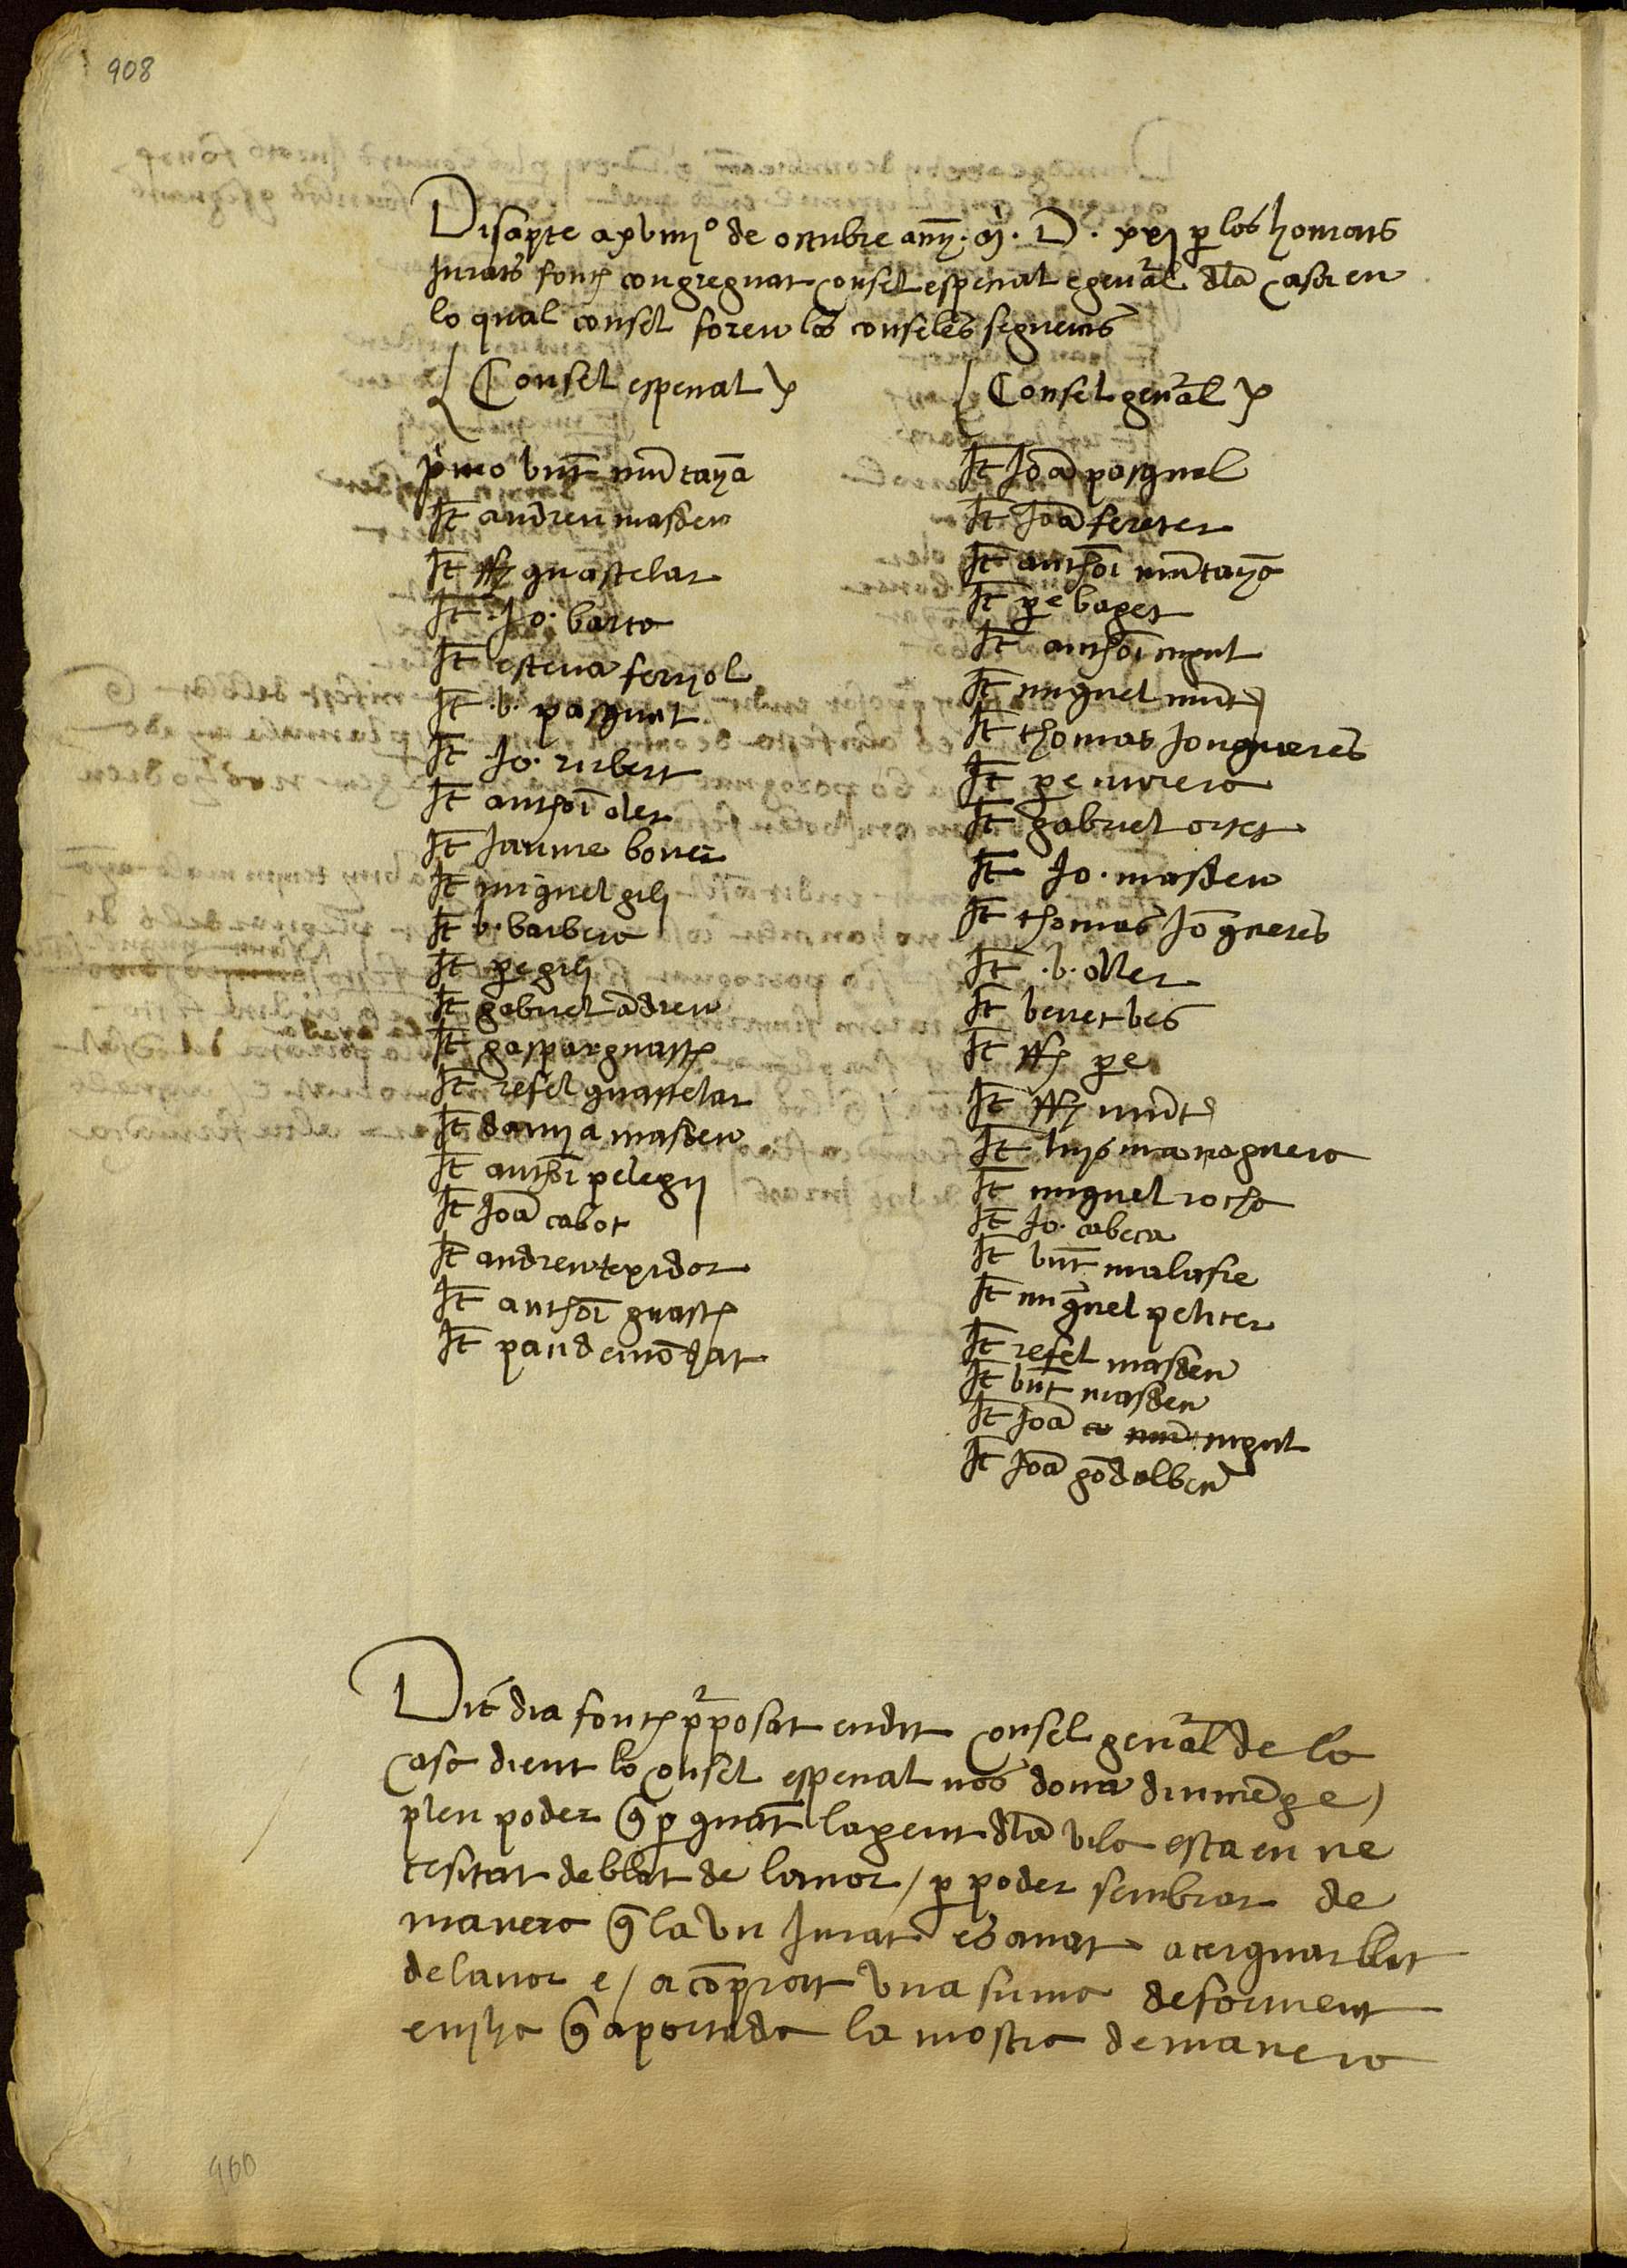 908
Disapte a xviiii° de octubre any. M. D. xxj per los honrats
Jurats fonch congreguat consel espesial e general dla casa en
lo qual consel foren los conselers seguents
Consel espesial
pimo bnt muntaya
It andreu masdeu
It ffj guastelar
It Jo. barto
It esteva feryol
It .b. pasqual
It Jo. rubert
It anthoi oler
It Jaume bover
It miguel gilj
It b. barbera
It pe gilj
It gabriel adreu
It gaspar guasch
It refel guastelar
It damya masdeu
It anthoi pelegrj
It Joa cabot
It andreu texidor
It anthoi guasch
It pau demodjat
Consel general
It Joa pasqual
It Joa fereter
It anthoi mutaya
It pe bages
It anthoi mgut
It miguel munt
It thomas Jonqueres
It pe morera
It gabriel ortes
It Jo. masdeu
It thomas Joqueres
It .b. oller
It benet ves
It ffj pe
It ffj munt
It luys managuera
It miguel rocha
It Jo. cabeca
It bnt malafre
It miguel peliter
It refel masdeu
It bnt masdeu
It Joa mgut
It Joa godalbeu
Dit dia fonch pposat en dit consel general de la
casa dient lo consel espesial nos dona diumege
plen poder q per quat la gent dla vila esta en ne
cesitat de blat de lavor / per poder sembrar de
manera q la un Jurat es anat a cerquar blat
de lavor e / a coprat una suma de forment
e nj ha q aportada la mostra de manera
900